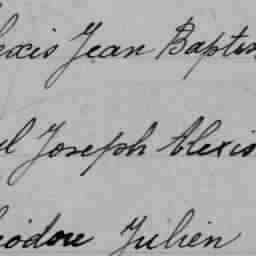 lexis Jean Baptis
el Joseph Alexis
éodore Julien